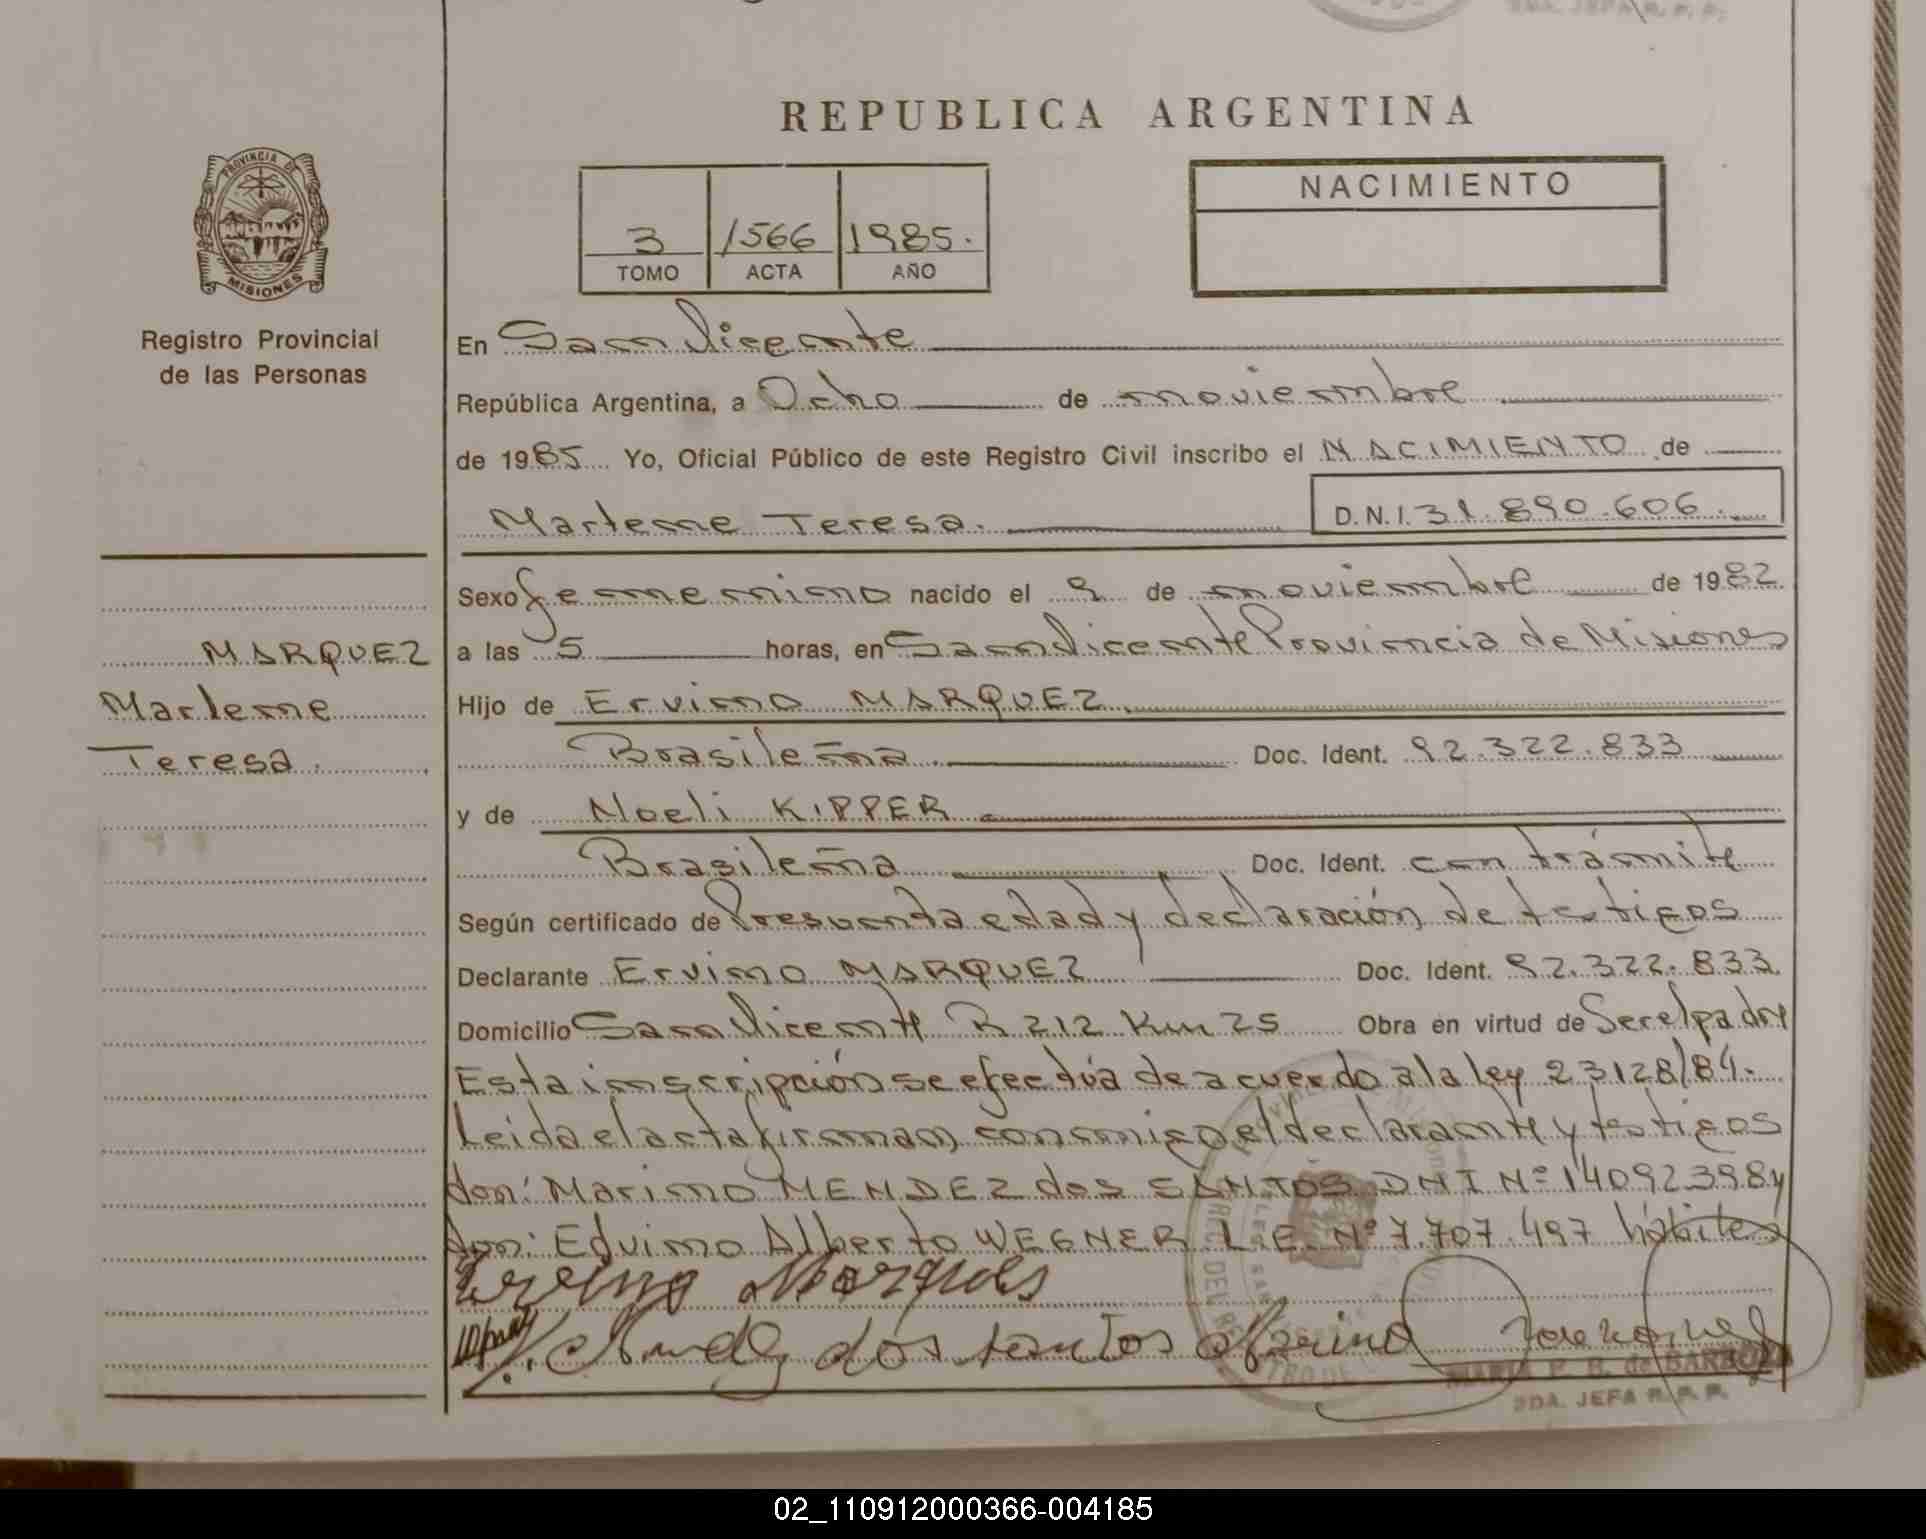 2DA. JEFA R. P. P.
REPUBLICA ARGENTINA
PROVINCIA DE
MISIONES
Registro Provincial
de las Personas
3 1566 1985.
TOMO ACTA AÑO
NACIMIENTO
En San Vicente
República Argentina, a Ocho de noviembre
de 1985 Yo, Oficial Público de este Registro Civil inscribo el NACIMIENTO de
Marlene Teresa. D.N.I. 31.890.606.
MARQUEZ
Marlene
Teresa.
Sexo femenino nacido el 9 de noviembre de 1982
a las 5 horas, en San Vicente Provincia de Misiones
Hijo de Ervino MARQUEZ.
Brasileña. Doc. Ident. 92.322.833
y de Noeli KIPPER
Brasileña Doc. Ident. con trámite
Según certificado de Presunta edad y declaración de testigos
Declarante Ervino MARQUEZ Doc. Ident. 92.322.833.
Domicilio San Vicente R 212 Km 25 Obra en virtud de Ser el padre
Esta inscripción se efectúa de acuerdo a la ley 23128/84.
Leida el acta firman conmigo el declarante y testigos
don: Marino MENDEZ dos SANTOS DNI Nº 14092398 y
don: Edvino Alberto WEGNER L.E. Nº 7.707.497 hábiles
Ervino Marques
dos santos Marino
MARIA P. B. de BARBOZA
2DA. JEFA R. P. P.
02_110912000366-004185